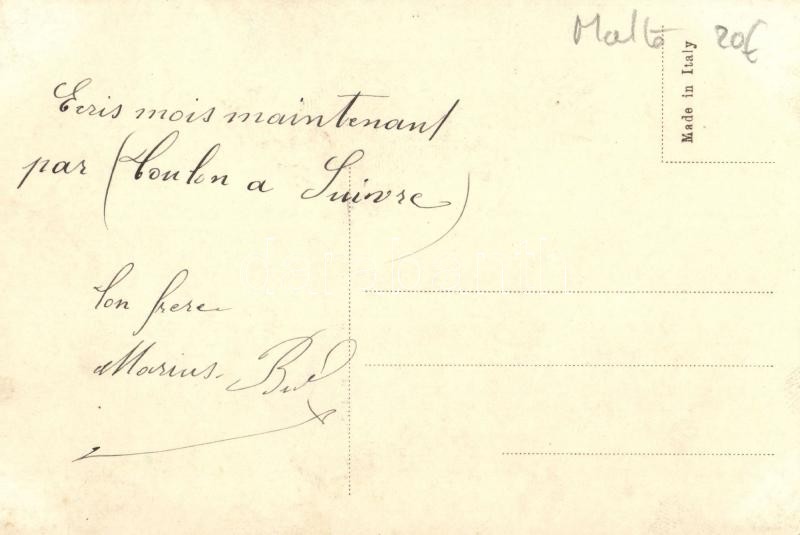 Malta 20€
Made in Italy
Ecris mois maintenant
par (Toulon a Suivre)
Ton frere
Marius